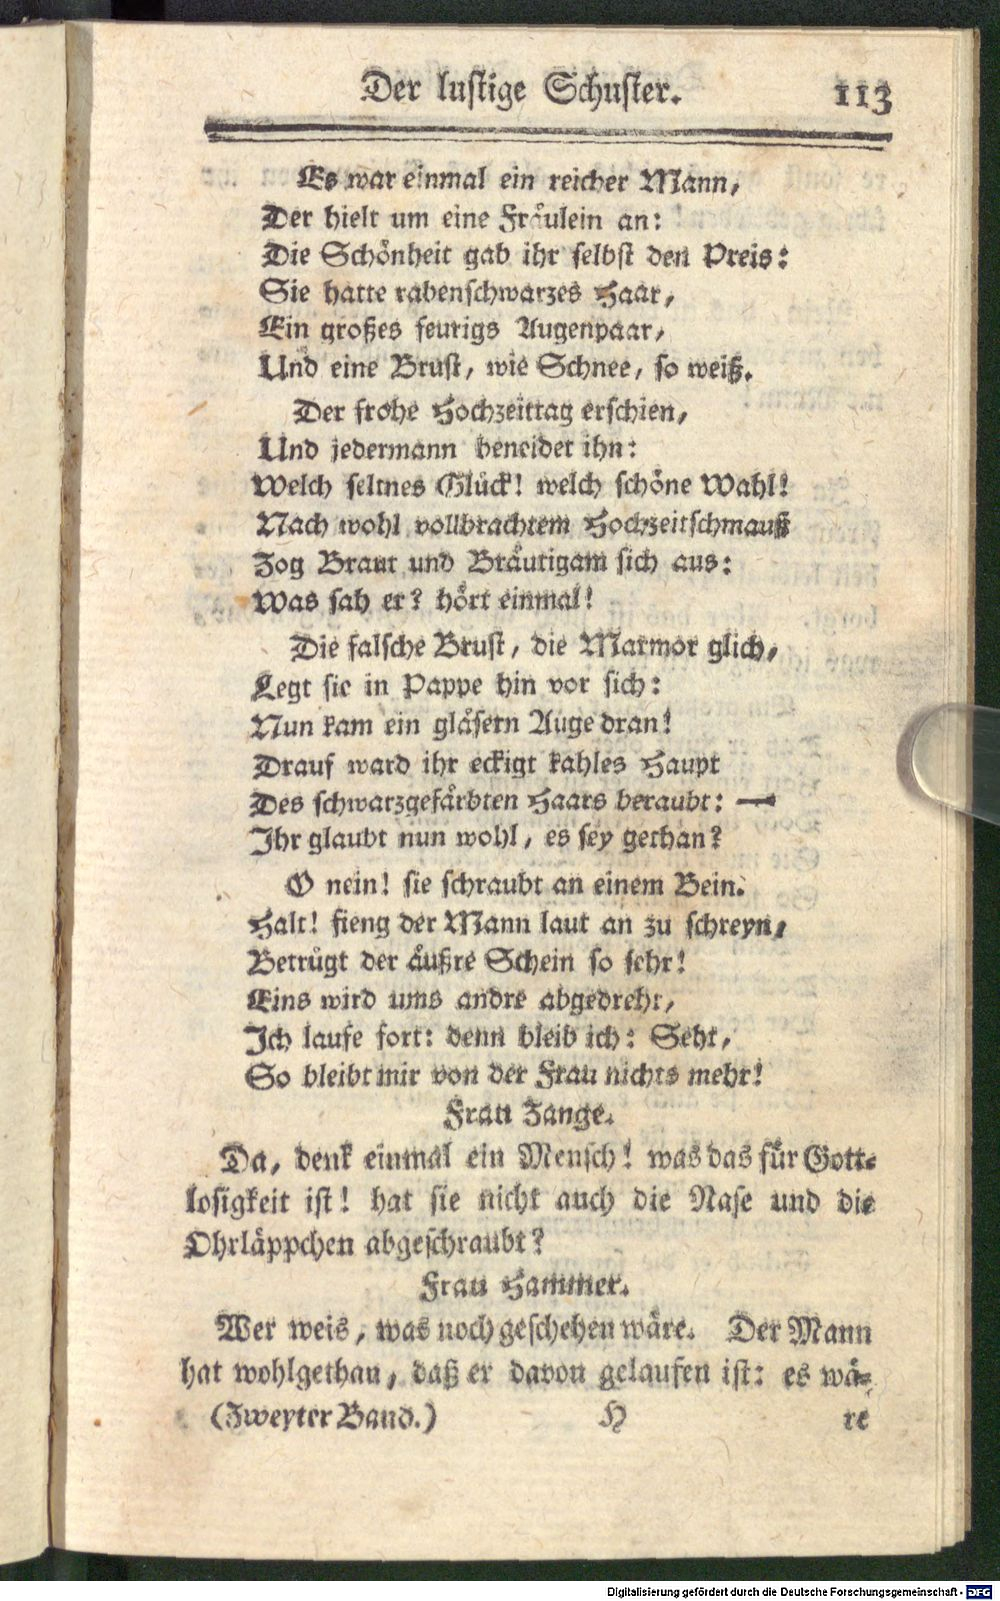 Der lustige Schuster. 113
Es war einmal ein reicher Mann,
Der hielt um eine Fräulein an:
Die Schönheit gab ihr selbst den Preis:
Sie hatte rabenschwarzes Haar,
Ein großes feurigs Augenpaar,
Und eine Brust, wie Schnee, so weiß.
Der frohe Hochzeittag erschien,
Und jedermann beneidet ihn:
Welch seltnes Glück! welch schöne Wahl!
Nach wohl vollbrachtem Hochzeitschmauß
Zog Braut und Bräutigam sich aus:
Was sah er? hört einmal!
Die falsche Brust, die Marmor glich,
Legt sie in Pappe hin vor sich:
Nun kam ein gläsern Auge dran!
Drauf ward ihr eckigt kahles Haupt
Des schwarzgefärbten Haars beraubt: —
Ihr glaubt nun wohl, es sey gethan?
O nein! sie schraubt an einem Bein.
Halt! fieng der Mann laut an zu schreyn,
Betrügt der äußre Schein so sehr!
Eins wird ums andre abgedreht,
Ich laufe fort: denn bleib ich: Seht,
So bleibt mir von der Frau nichts mehr!
Frau Zange.
Da, denk einmal ein Mensch! was das für Gott-
losigkeit ist! hat sie nicht auch die Nase und die
Ohrläppchen abgeschraubt?
Frau Hammer.
Wer weis, was noch geschehen wäre. Der Mann
hat wohlgethan, daß er davon gelaufen ist: es wä-
(Zweyter Band.) H re
Digitalisierung gefördert durch die Deutsche Forschungsgemeinschaft - DFG